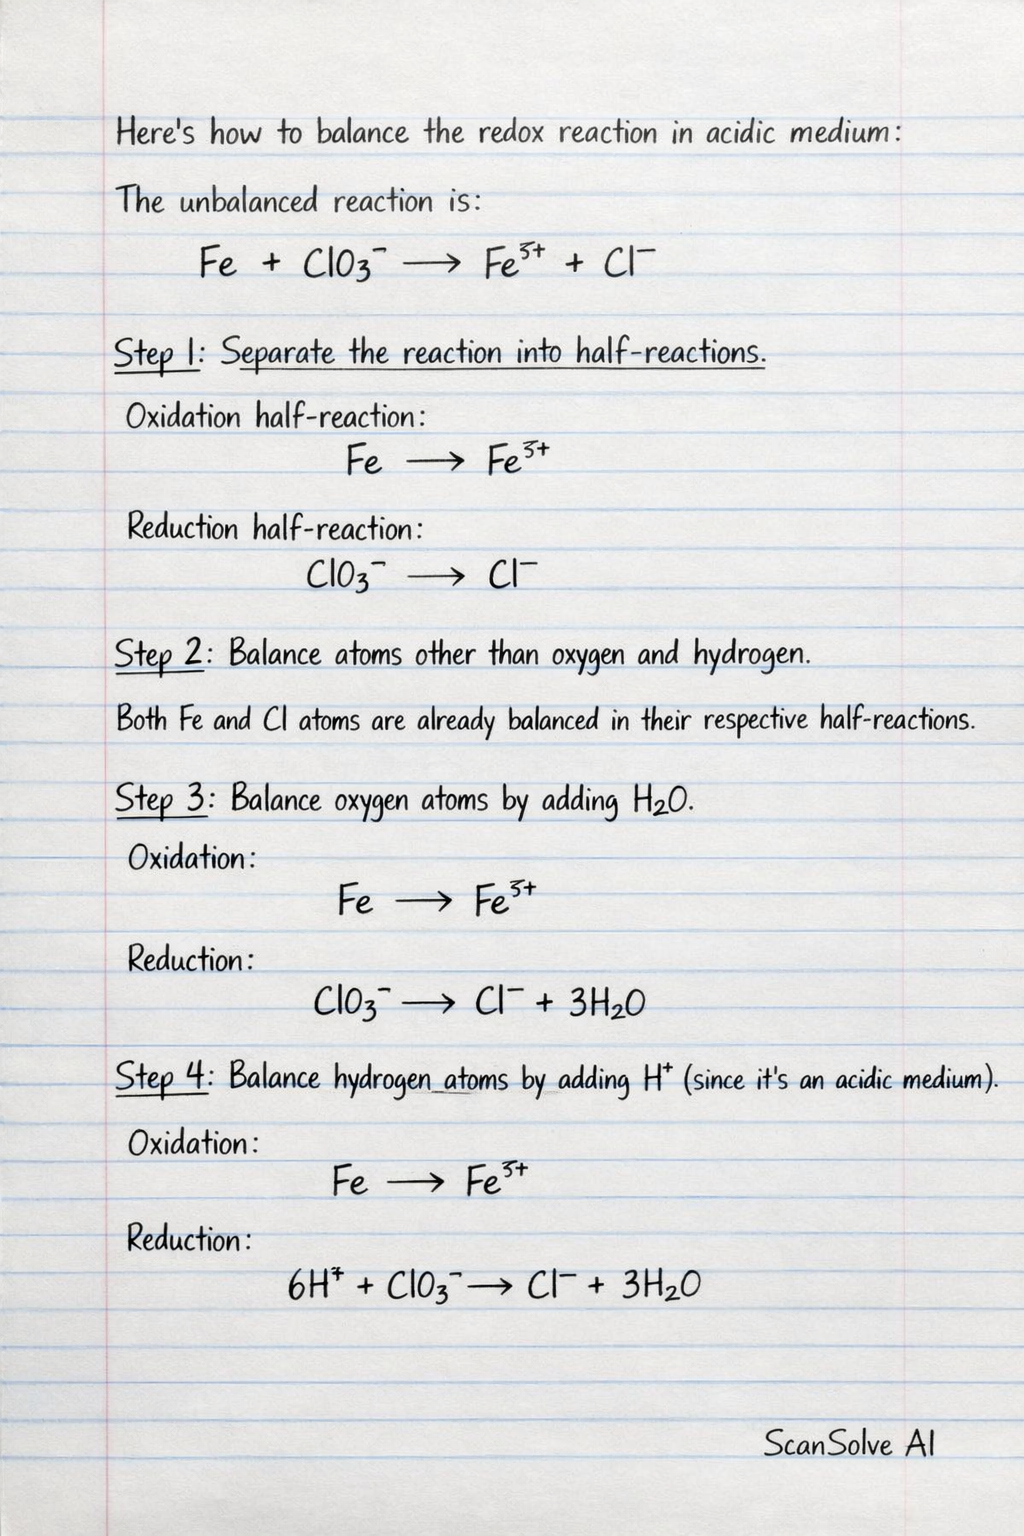 Here's how to balance the redox reaction in acidic medium:
The unbalanced reaction is:
Fe + ClO₃⁻ ⟶ Fe³⁺ + Cl⁻
Step 1: Separate the reaction into half-reactions.
Oxidation half-reaction:
Fe ⟶ Fe³⁺
Reduction half-reaction:
ClO₃⁻ ⟶ Cl⁻
Step 2: Balance atoms other than oxygen and hydrogen.
Both Fe and Cl atoms are already balanced in their respective half-reactions.
Step 3: Balance oxygen atoms by adding H₂O.
Oxidation:
Fe ⟶ Fe³⁺
Reduction:
ClO₃⁻ ⟶ Cl⁻ + 3H₂O
Step 4: Balance hydrogen atoms by adding H⁺ (since it's an acidic medium).
Oxidation:
Fe ⟶ Fe³⁺
Reduction:
6H⁺ + ClO₃⁻ ⟶ Cl⁻ + 3H₂O
ScanSolve AI